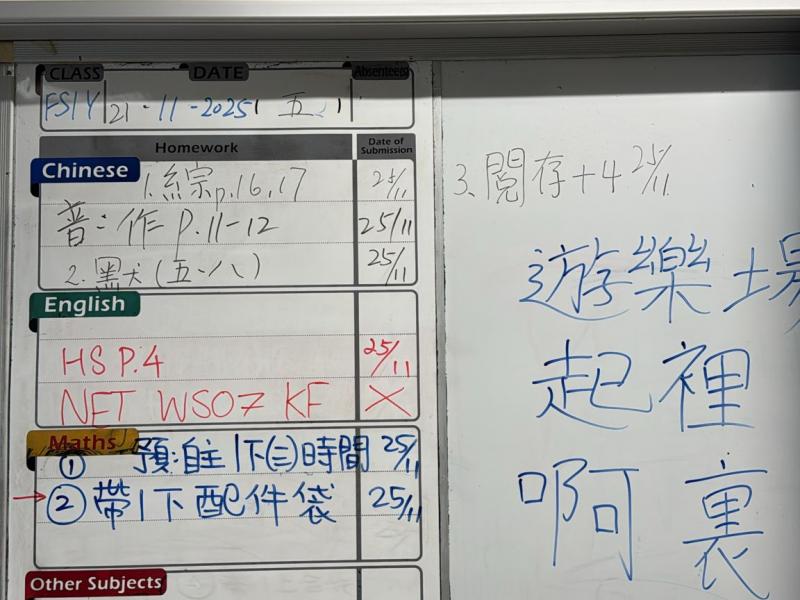 CLASS DATE Absentees
21-11-2025 五
Homework Date of Submission
Chinese
1.綜p.16,17 25/11
普:作 P.11-12 25/11
2. (五.八) 25/11
English
HS P.4 25/11
NET WS07 KF X
Maths
① 預:自主1下(三)時間 25/11
→ ② 帶1下配件袋 25/11
Other Subjects
3.閱存+4 25/11
遊樂場
起 裡
啊 裏